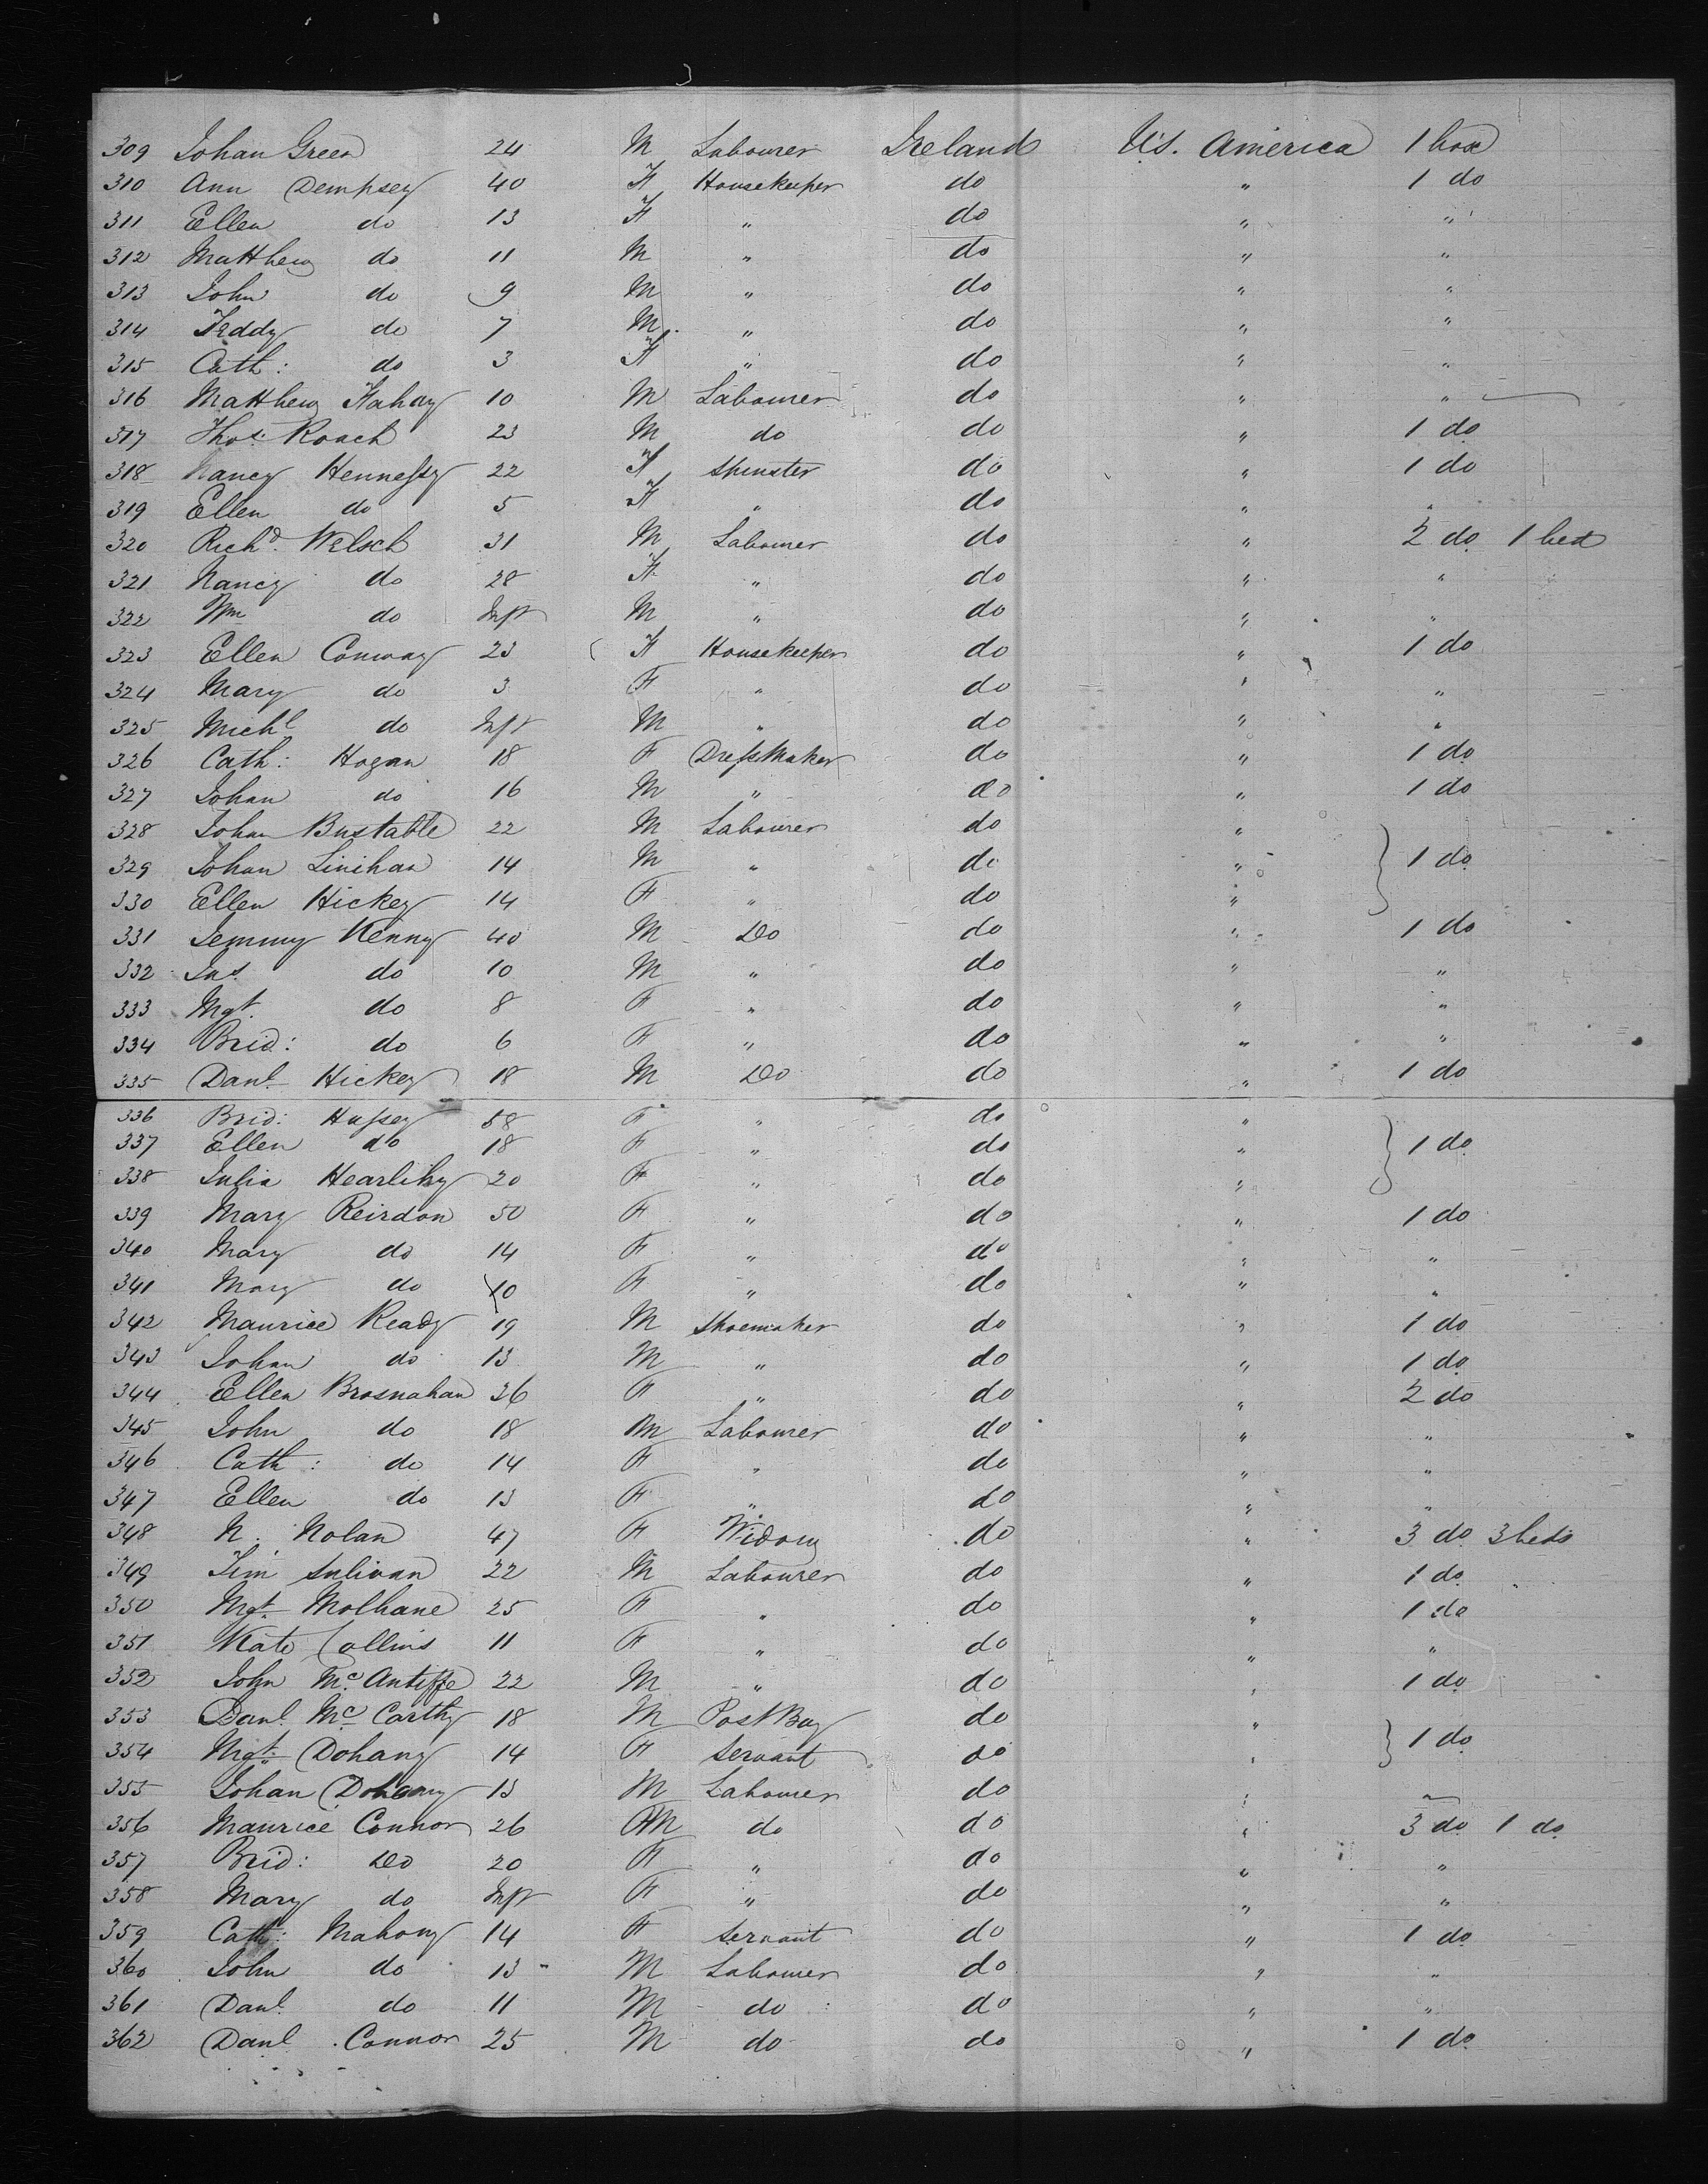 309 Johan Green 24 M Labourer Ireland U.S. America 1 box
310 Ann Dempsey 40 F Housekeeper do " 1 do
311 Ellen do 13 F " do " "
312 Matthew do 11 M " do " "
313 John do 9 M " do " "
314 Teddy do 7 M " do " "
315 Cath: do 3 F " do " "
316 Matthew Fahay 10 M Labourer do " "
317 Thos. Roach 23 M do do " 1 do
318 Nancy Hennessy 22 F Spinster do " 1 do
319 Ellen do 5 F " do " "
320 Richd. Welsch 31 M Labourer do " 2 do 1 bed
321 Nancy do 28 F " do " "
322 Wm do Inft M " do " "
323 Ellen Conway 23 F Housekeeper do " 1 do
324 Mary do 3 F " do " "
325 Michl do Inft M " do " "
326 Cath: Hogan 18 F DressMaker do " 1 do
327 Johan do 16 M " do " 1 do
328 Johan Bustable 22 M Labourer do "
329 Johan Linihan 14 M " do " } 1 do
330 Ellen Hickey 14 F " do "
331 Jemmy Kenny 40 M Do do " 1 do
332 Jas. do 10 M " do " "
333 Mgt. do 8 F " do " "
334 Brid: do 6 F " do " "
335 Danl. Hickey 18 M Do do " 1 do
336 Brid: Hussey 58 F " do "
337 Ellen do 18 F " do " } 1 do
338 Julia Hearlihy 20 F " do "
339 Mary Reirdon 50 F " do " 1 do
340 Mary do 14 F " do " "
341 Mary do 10 F " do " "
342 Maurice Ready 19 M Shoemaker do " 1 do
343 Johan do 13 M " do " 1 do
344 Ellen Brosnahan 36 F " do " 2 do
345 John do 18 M Labourer do " "
346 Cath: do 14 F " do " "
347 Ellen do 13 F " do " "
348 N. Nolan 47 F Widow do " 3 do 3 beds
349 Tim Sulivan 22 M Labourer do " 1 do
350 Mgt. Molhane 25 F " do " 1 do
351 Kate Collins 11 F " do " "
352 John Mc. Antiffe 22 M " do " 1 do
353 Danl. Mc Carthy 18 M Post Boy do "
354 Mgt. Dohany 14 F Servant do " } 1 do
355 Johan Dohany 13 M Labourer do "
356 Maurice Connor 26 M do do " 3 do 1 do
357 Brid: Do 20 F " do " "
358 Mary do Inft F " do " "
359 Cath: Mahony 14 F Servant do " 1 do
360 John do 13 M Labourer do " "
361 Danl. do 11 M do do " "
362 Danl. Connor 25 M do do " 1 do